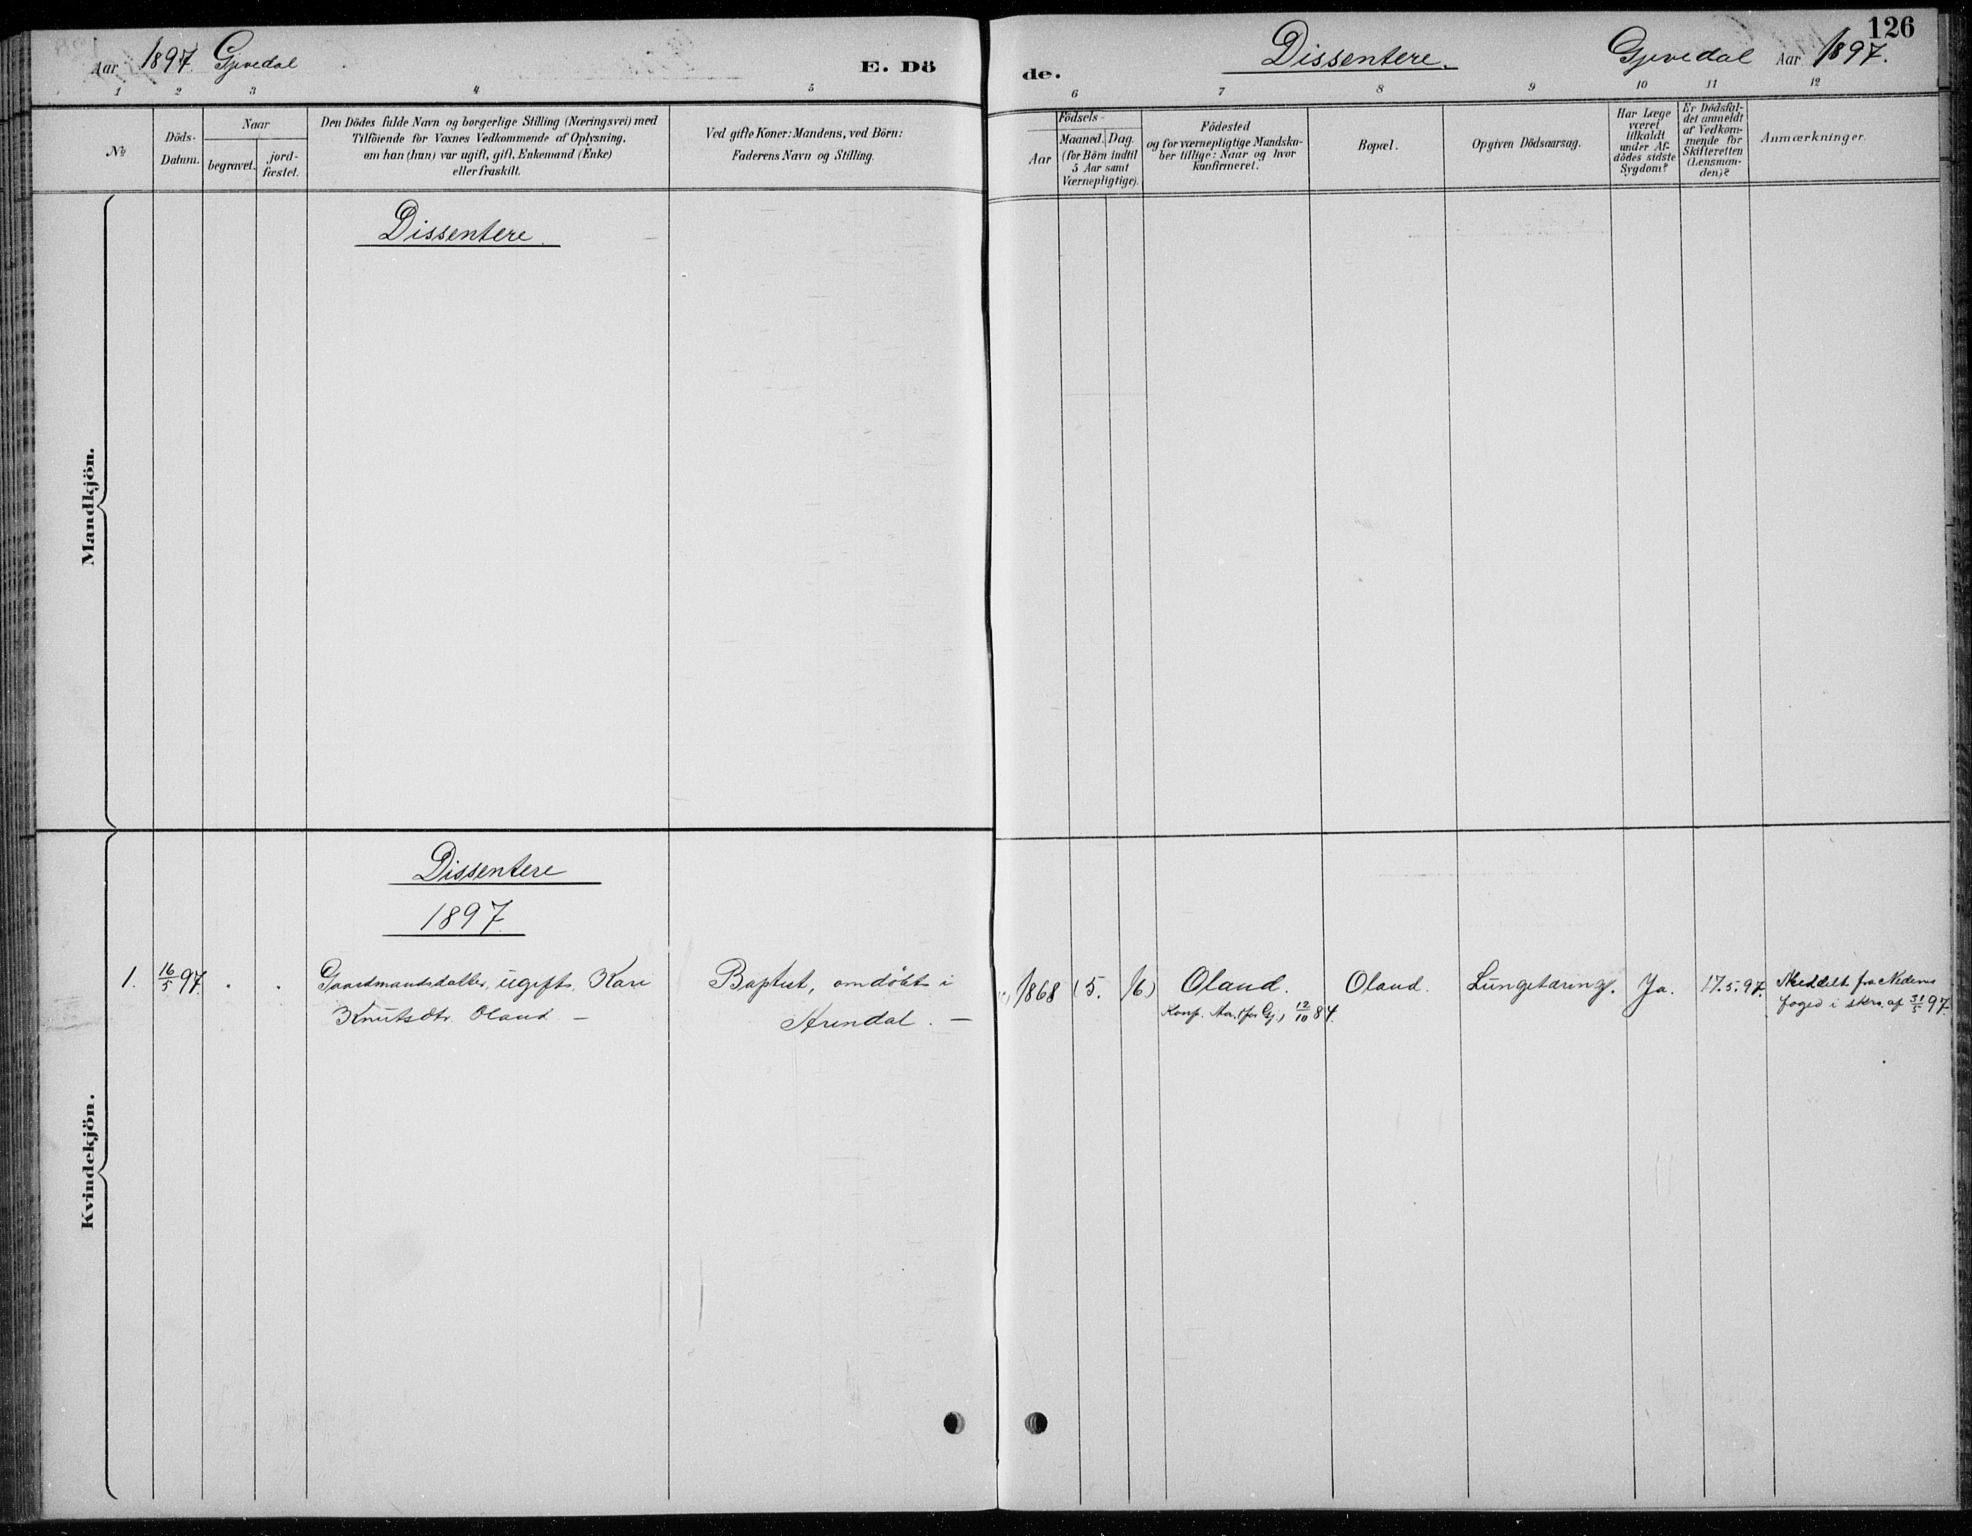 Aar 1897. Gjevedal
E. Dö
de.
Dissentere.
Gjevedal Aar 1897.
126
1 2 3 4 5
6 7 8 9 10 11 12
No
Döds-
Datum.
Naar
begravet.
jord-
fæstet.
Den Dödes fulde Navn og borgerlige Stilling (Næringsvei) med
Tilföiende for Voxnes Vedkommende af Oplysning,
om han (hun) var ugift, gift, Enkemand (Enke)
eller fraskilt.
Ved gifte Koner: Mandens, ved Börn:
Faderens Navn og Stilling.
Födsels-
Aar
Maaned. Dag.
(for Börn indtil
5 Aar samt
Værnepligtige).
Födested
og for værnepligtige Mandskaber tillige: Naar og hvor
konfirmeret.
Bopæl.
Opgiven Dödsaarsag.
Har Læge
været
tilkaldt
under Af-
dödes sidste
Sygdom?
Er Dödsfal-
det anmeldt
af Vedkom-
mende for
Skifteretten
(Lensman-
den)?
Anmærkninger.
Mandkjön.
Dissentere.
Kvindekjön.
No
Dissentere
1897.
1. 16/5 97. " " Gaardmandsdatter, ugift, Kari
Knutsdtr. Oland —
Baptist, omdöbt i
Arendal. —
1868 (5. 16)
Oland.
Konf. 12/10 84.
Oland.
Lungetæring.
Ja.
17.5.97.
Meddelt fra Nedenes
foged i skr. af 31/5 97.